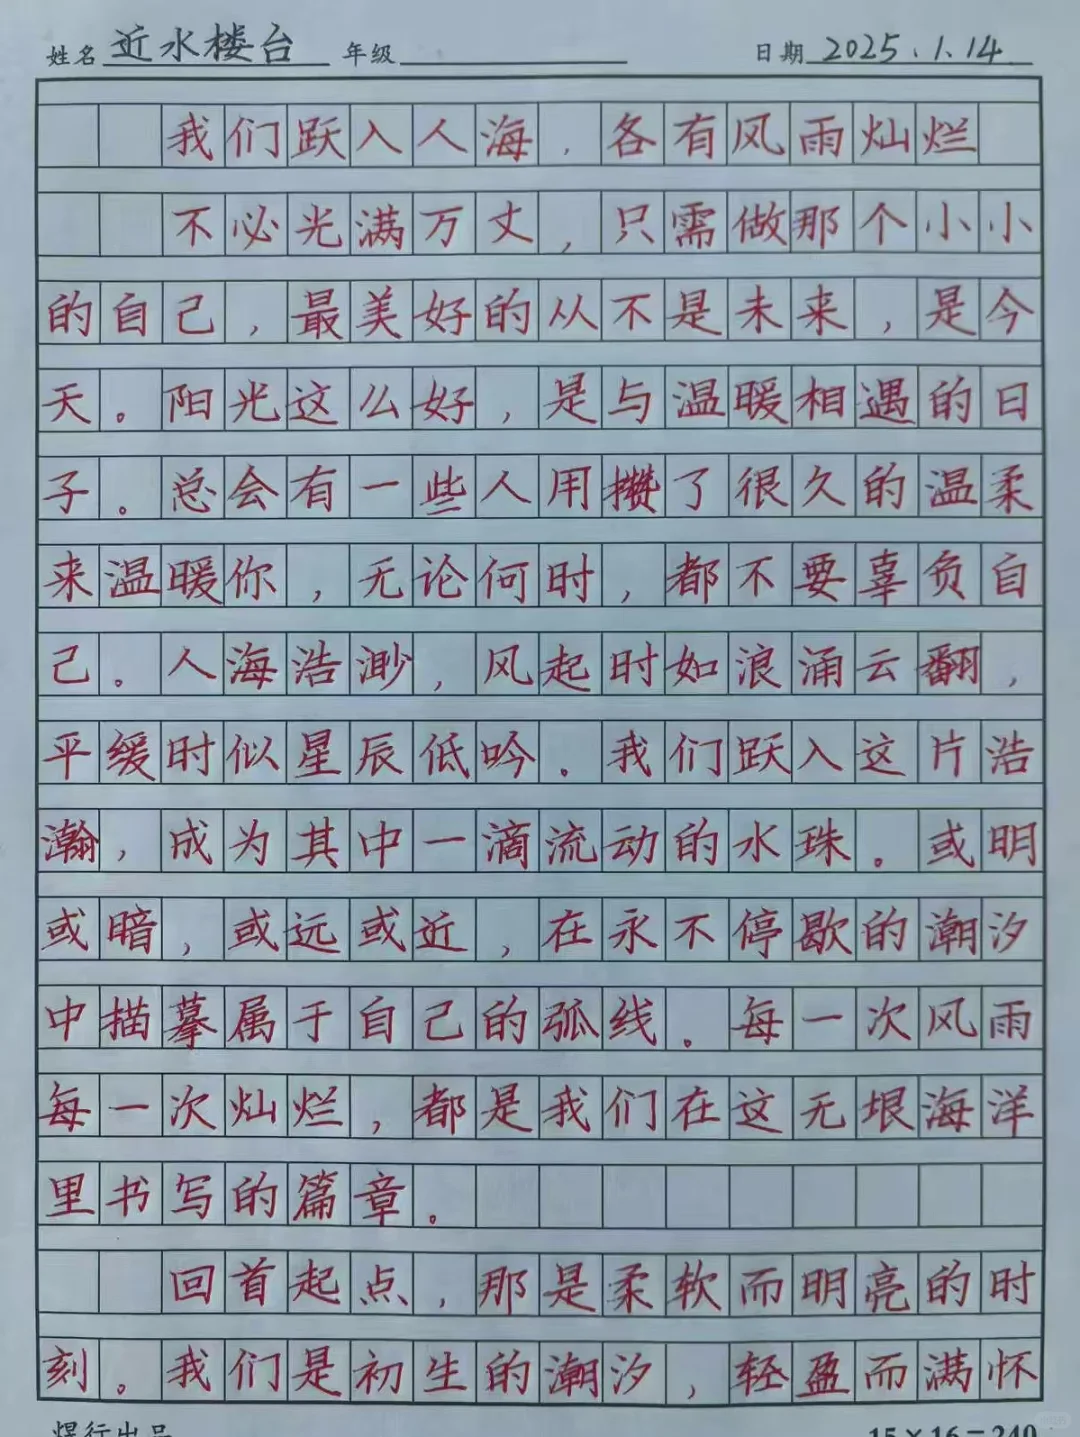 姓名 近水楼台 年级 日期 2025.1.14
我们跃入人海，各有风雨灿烂
不必光满万丈，只需做那个小小
的自己，最美好的从不是未来，是今
天。阳光这么好，是与温暖相遇的日
子。总会有一些人用攒了很久的温柔
来温暖你，无论何时，都不要辜负自
己。人海浩渺，风起时如浪涌云翻，
平缓时似星辰低吟。我们跃入这片浩
瀚，成为其中一滴流动的水珠。或明
或暗，或远或近，在永不停歇的潮汐
中描摹属于自己的弧线。每一次风雨
每一次灿烂，都是我们在这无垠海洋
里书写的篇章。
回首起点，那是柔软而明亮的时
刻。我们是初生的潮汐，轻盈而满怀
煜行出品 15×16=240